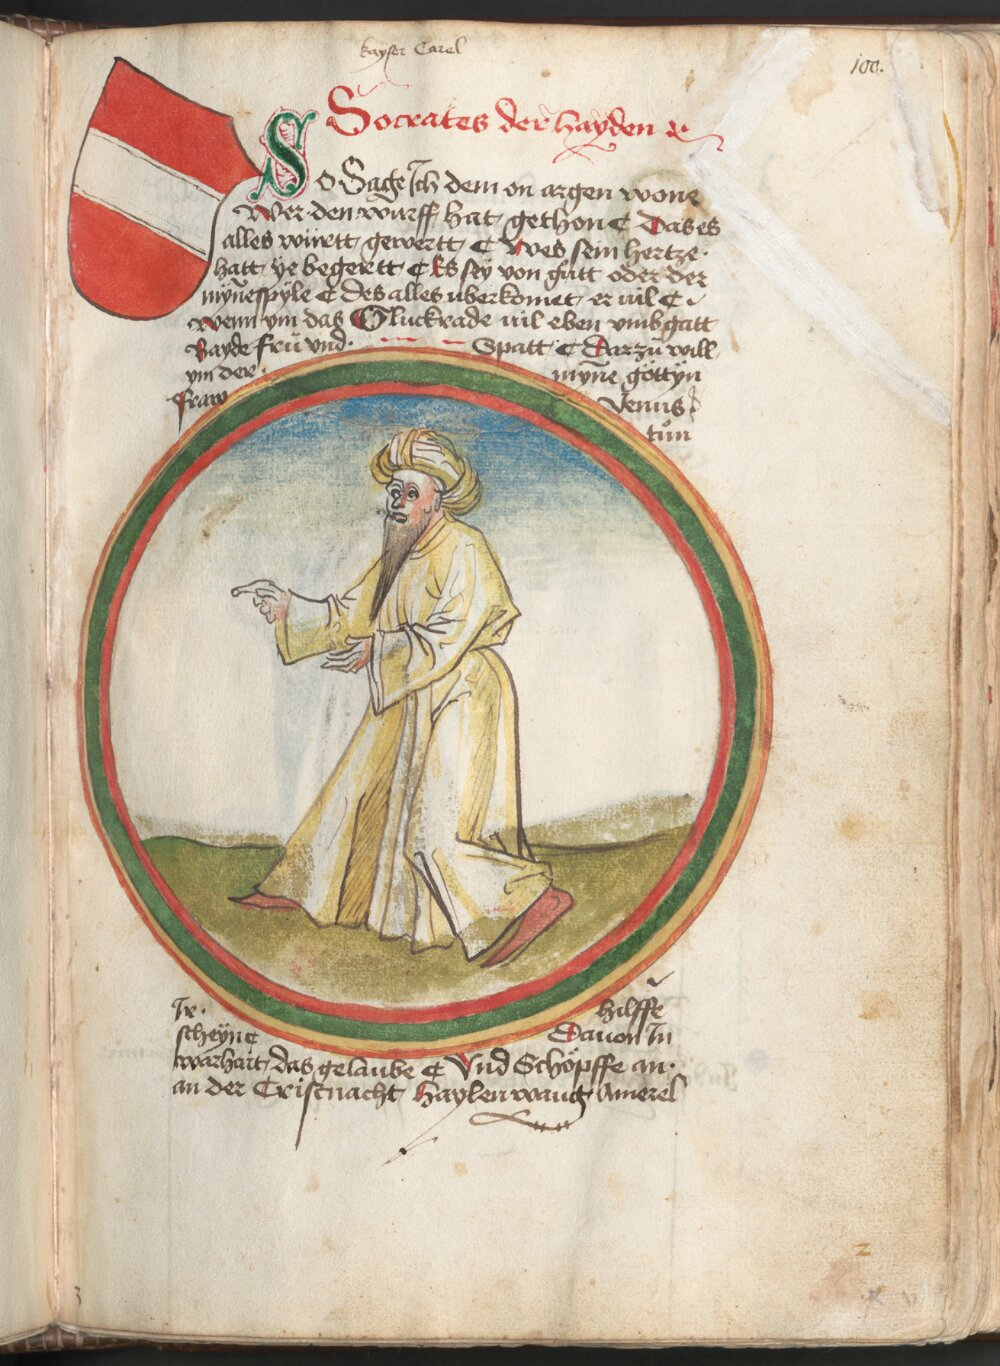 kayser Carel
100.
Socrates der hayden
So Sage Ich dem on argen wone
Wer den wurff hat gethon ¢ Das es
alles württ gewertt ¢ Wes sein hertze
hatt ye begertt ¢ Es sey von gůtt oder der
mynespyle ¢ Des alles uberkomet er vil ¢
wenn ym das Gluckrade vil eben vmbgatt
Bayde frü vnd Spatt ¢ Darzů will
ym der myne göttyn
fraw Venus
tůn
Ir hilffe
scheyne Dauon In
warhait das gelaube ¢ Vnd Schöpffe an
an der Cristnacht haylenwaug Amerel
2